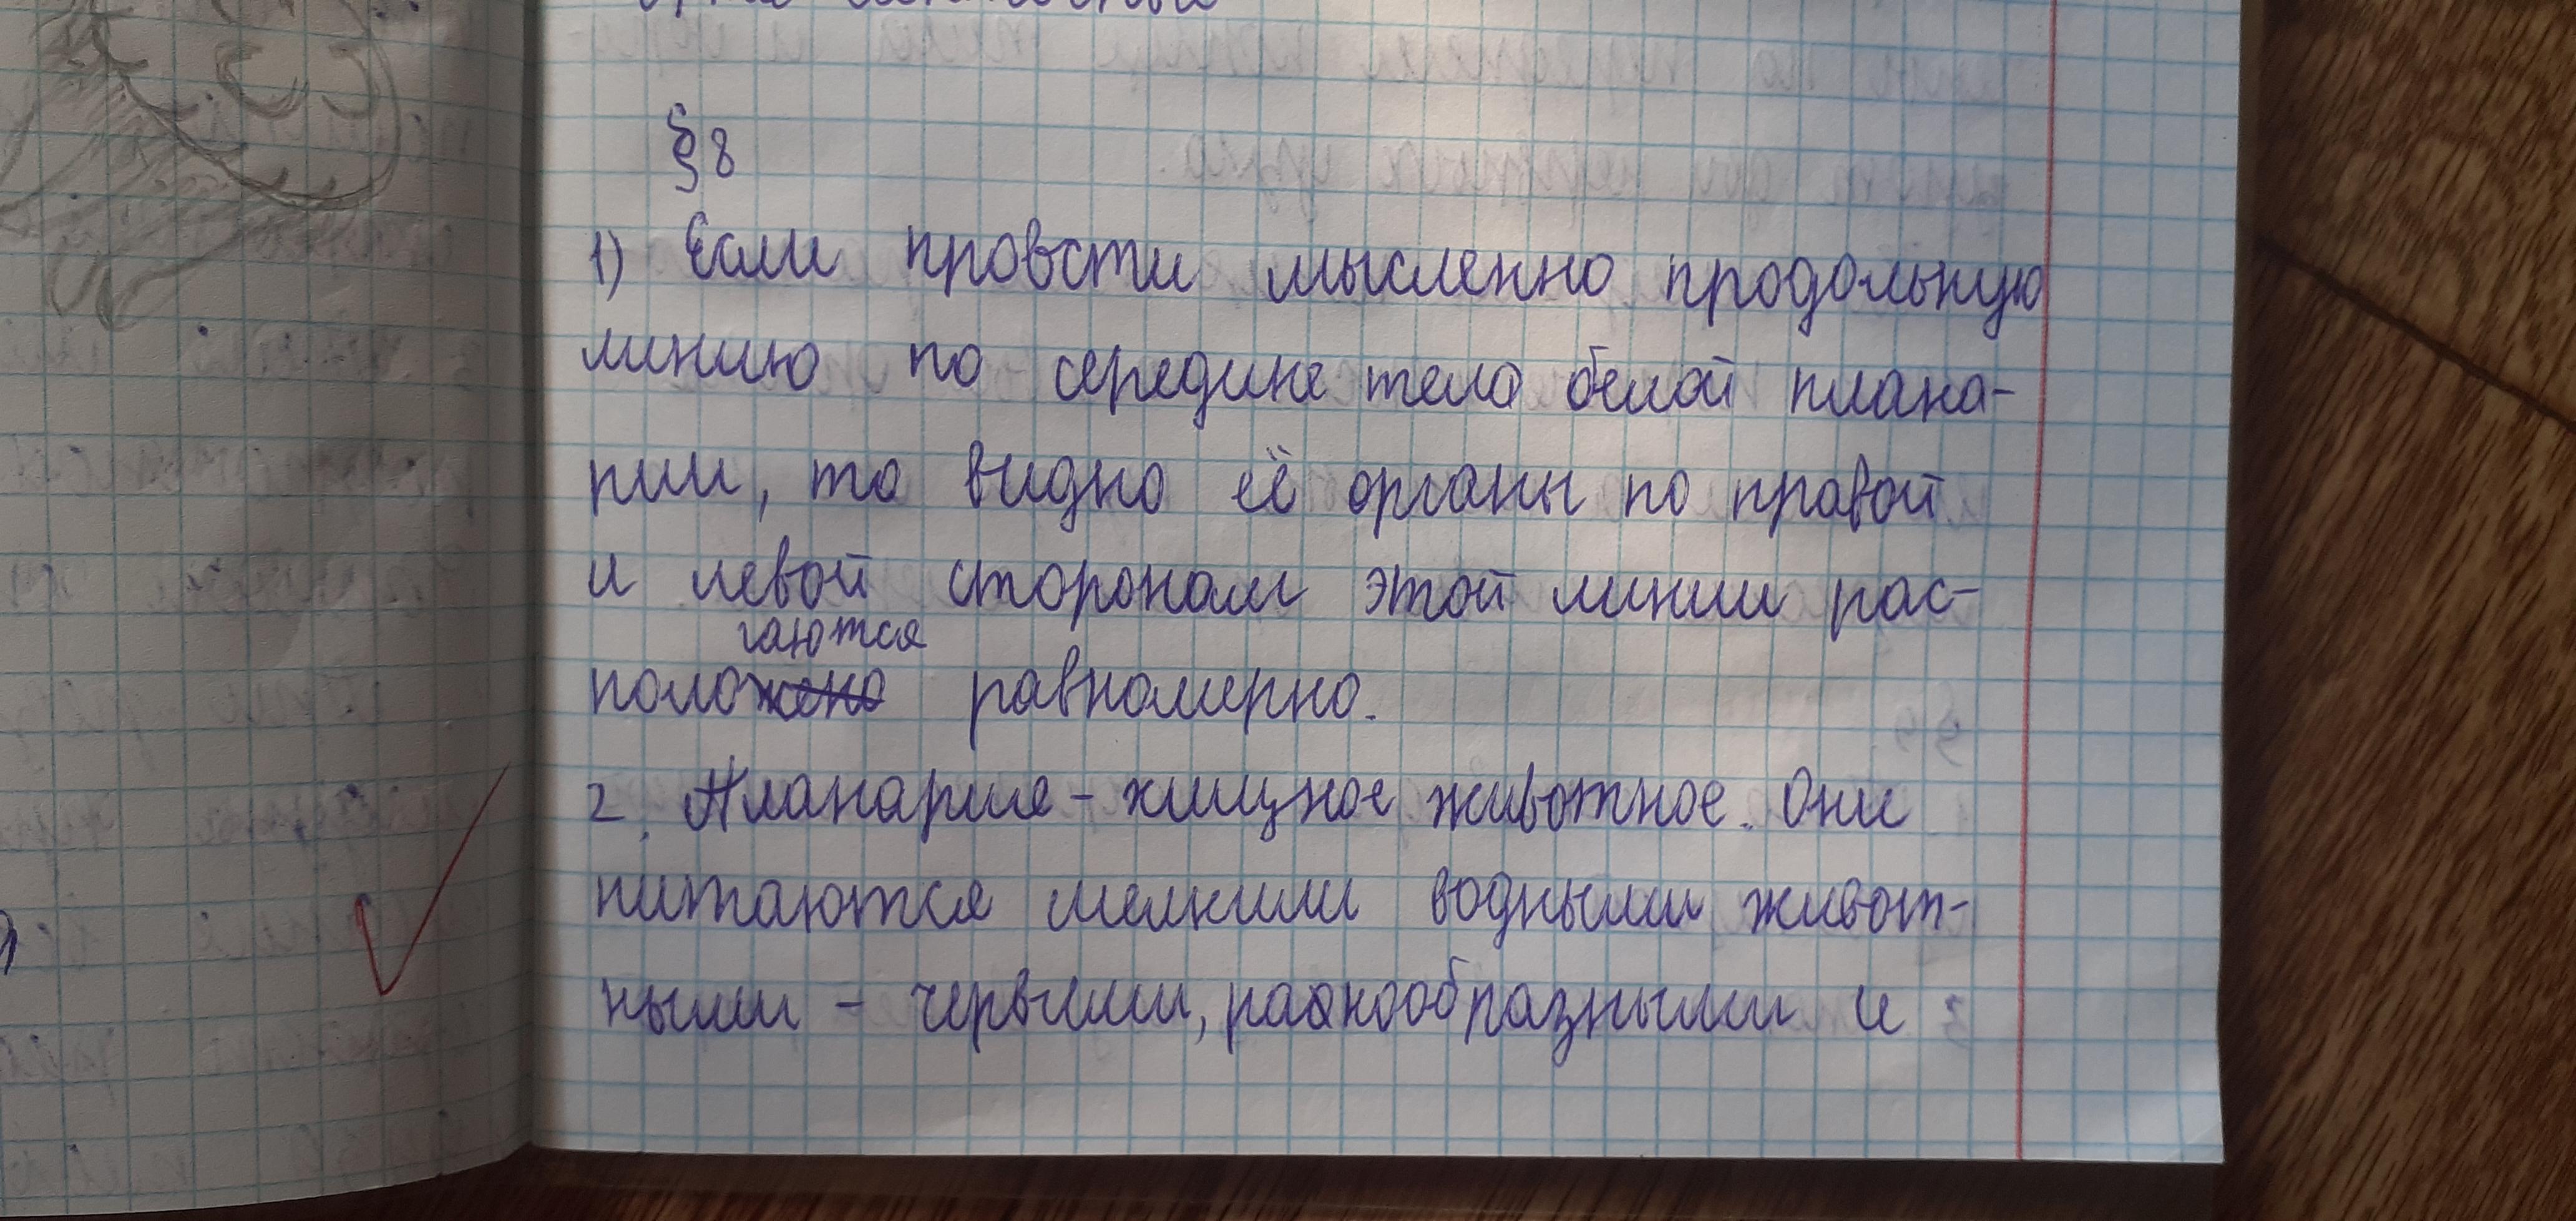 § 8
1) Если провсти мысленно продольную
линию по середине тела белой плана-
рии, то видно её органы по правой
и левой сторонам этой линии рас-
гаются
положено равномерно.
2. Планария - хищное животное. Они
питаются мелкими водными живот-
ными - червями, разнообразными и